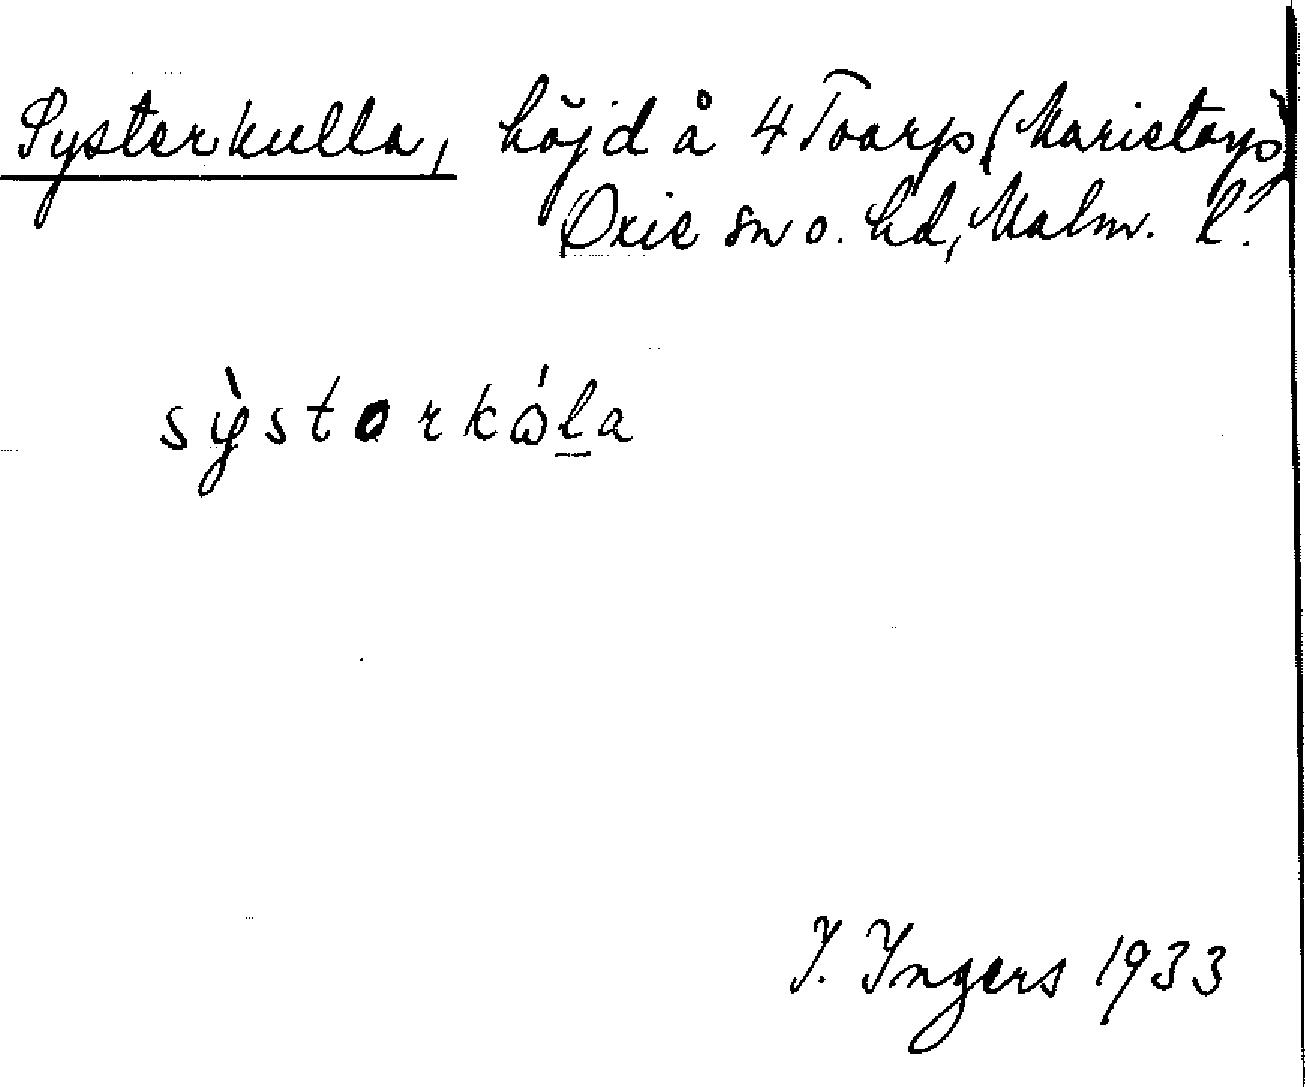 Systerkulla, höjd å 4 Toarp (Maristorp)
Oxie sn o. hd, Malm. l.
sỳstərkǻla
I. Ingers 1933